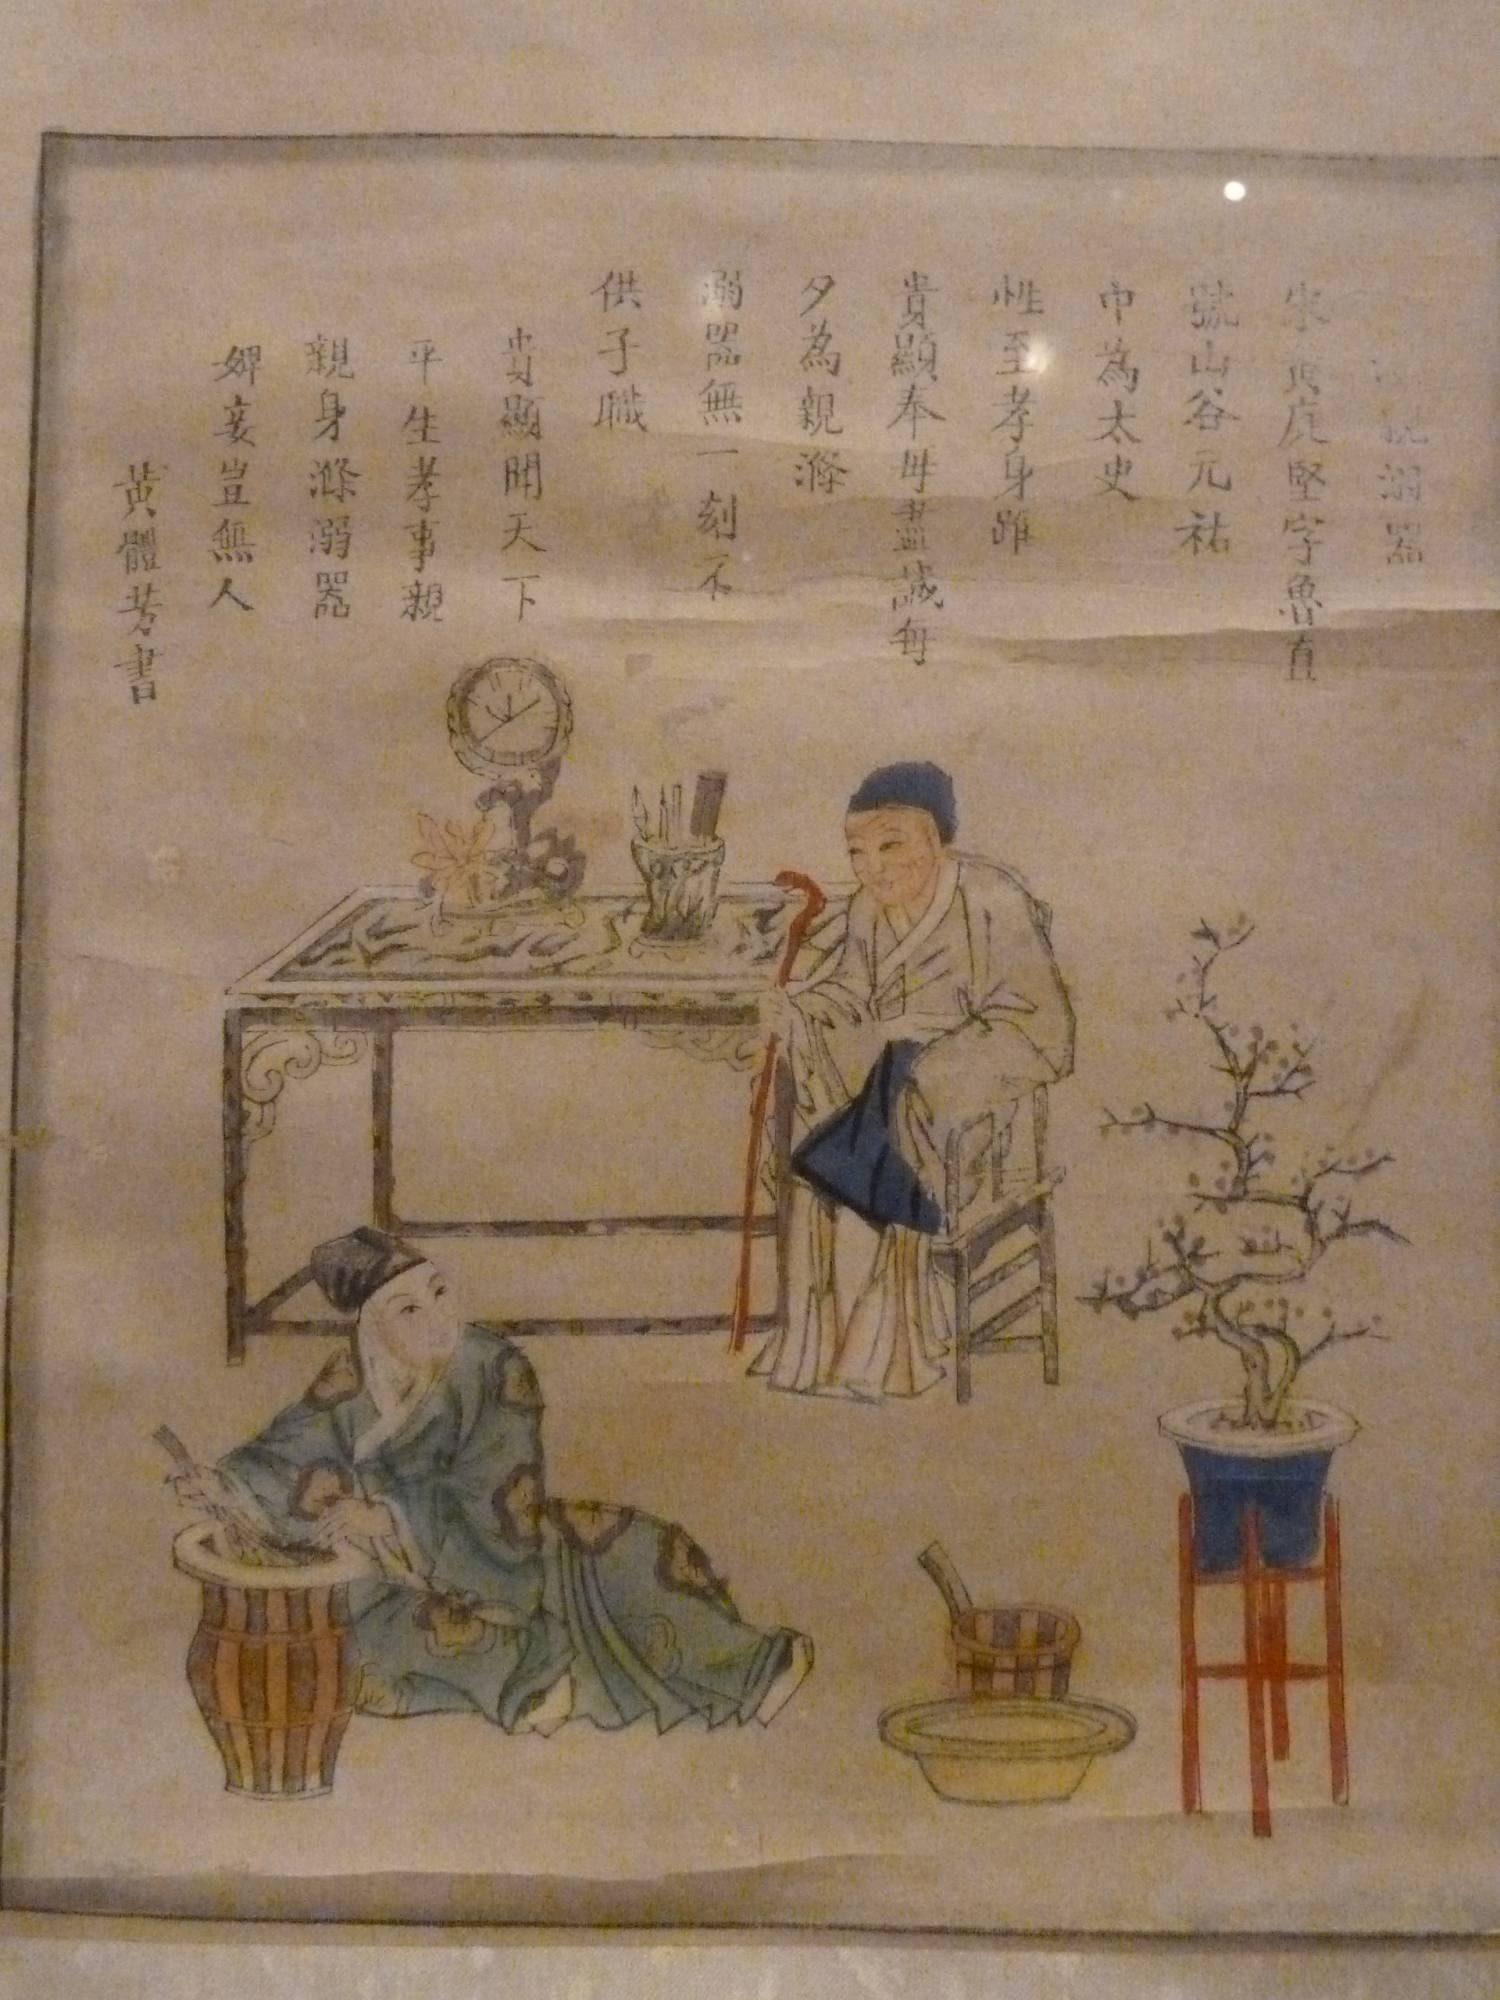 滌親溺器
宋黃庭堅字魯直
號山谷元祐
中為太史
性至孝身雖
貴顯奉母盡誠每
夕為親滌
溺器無一刻不
供子職
貴顯聞天下
平生孝事親
親身滌溺器
婢妾豈無人
黃體芳書